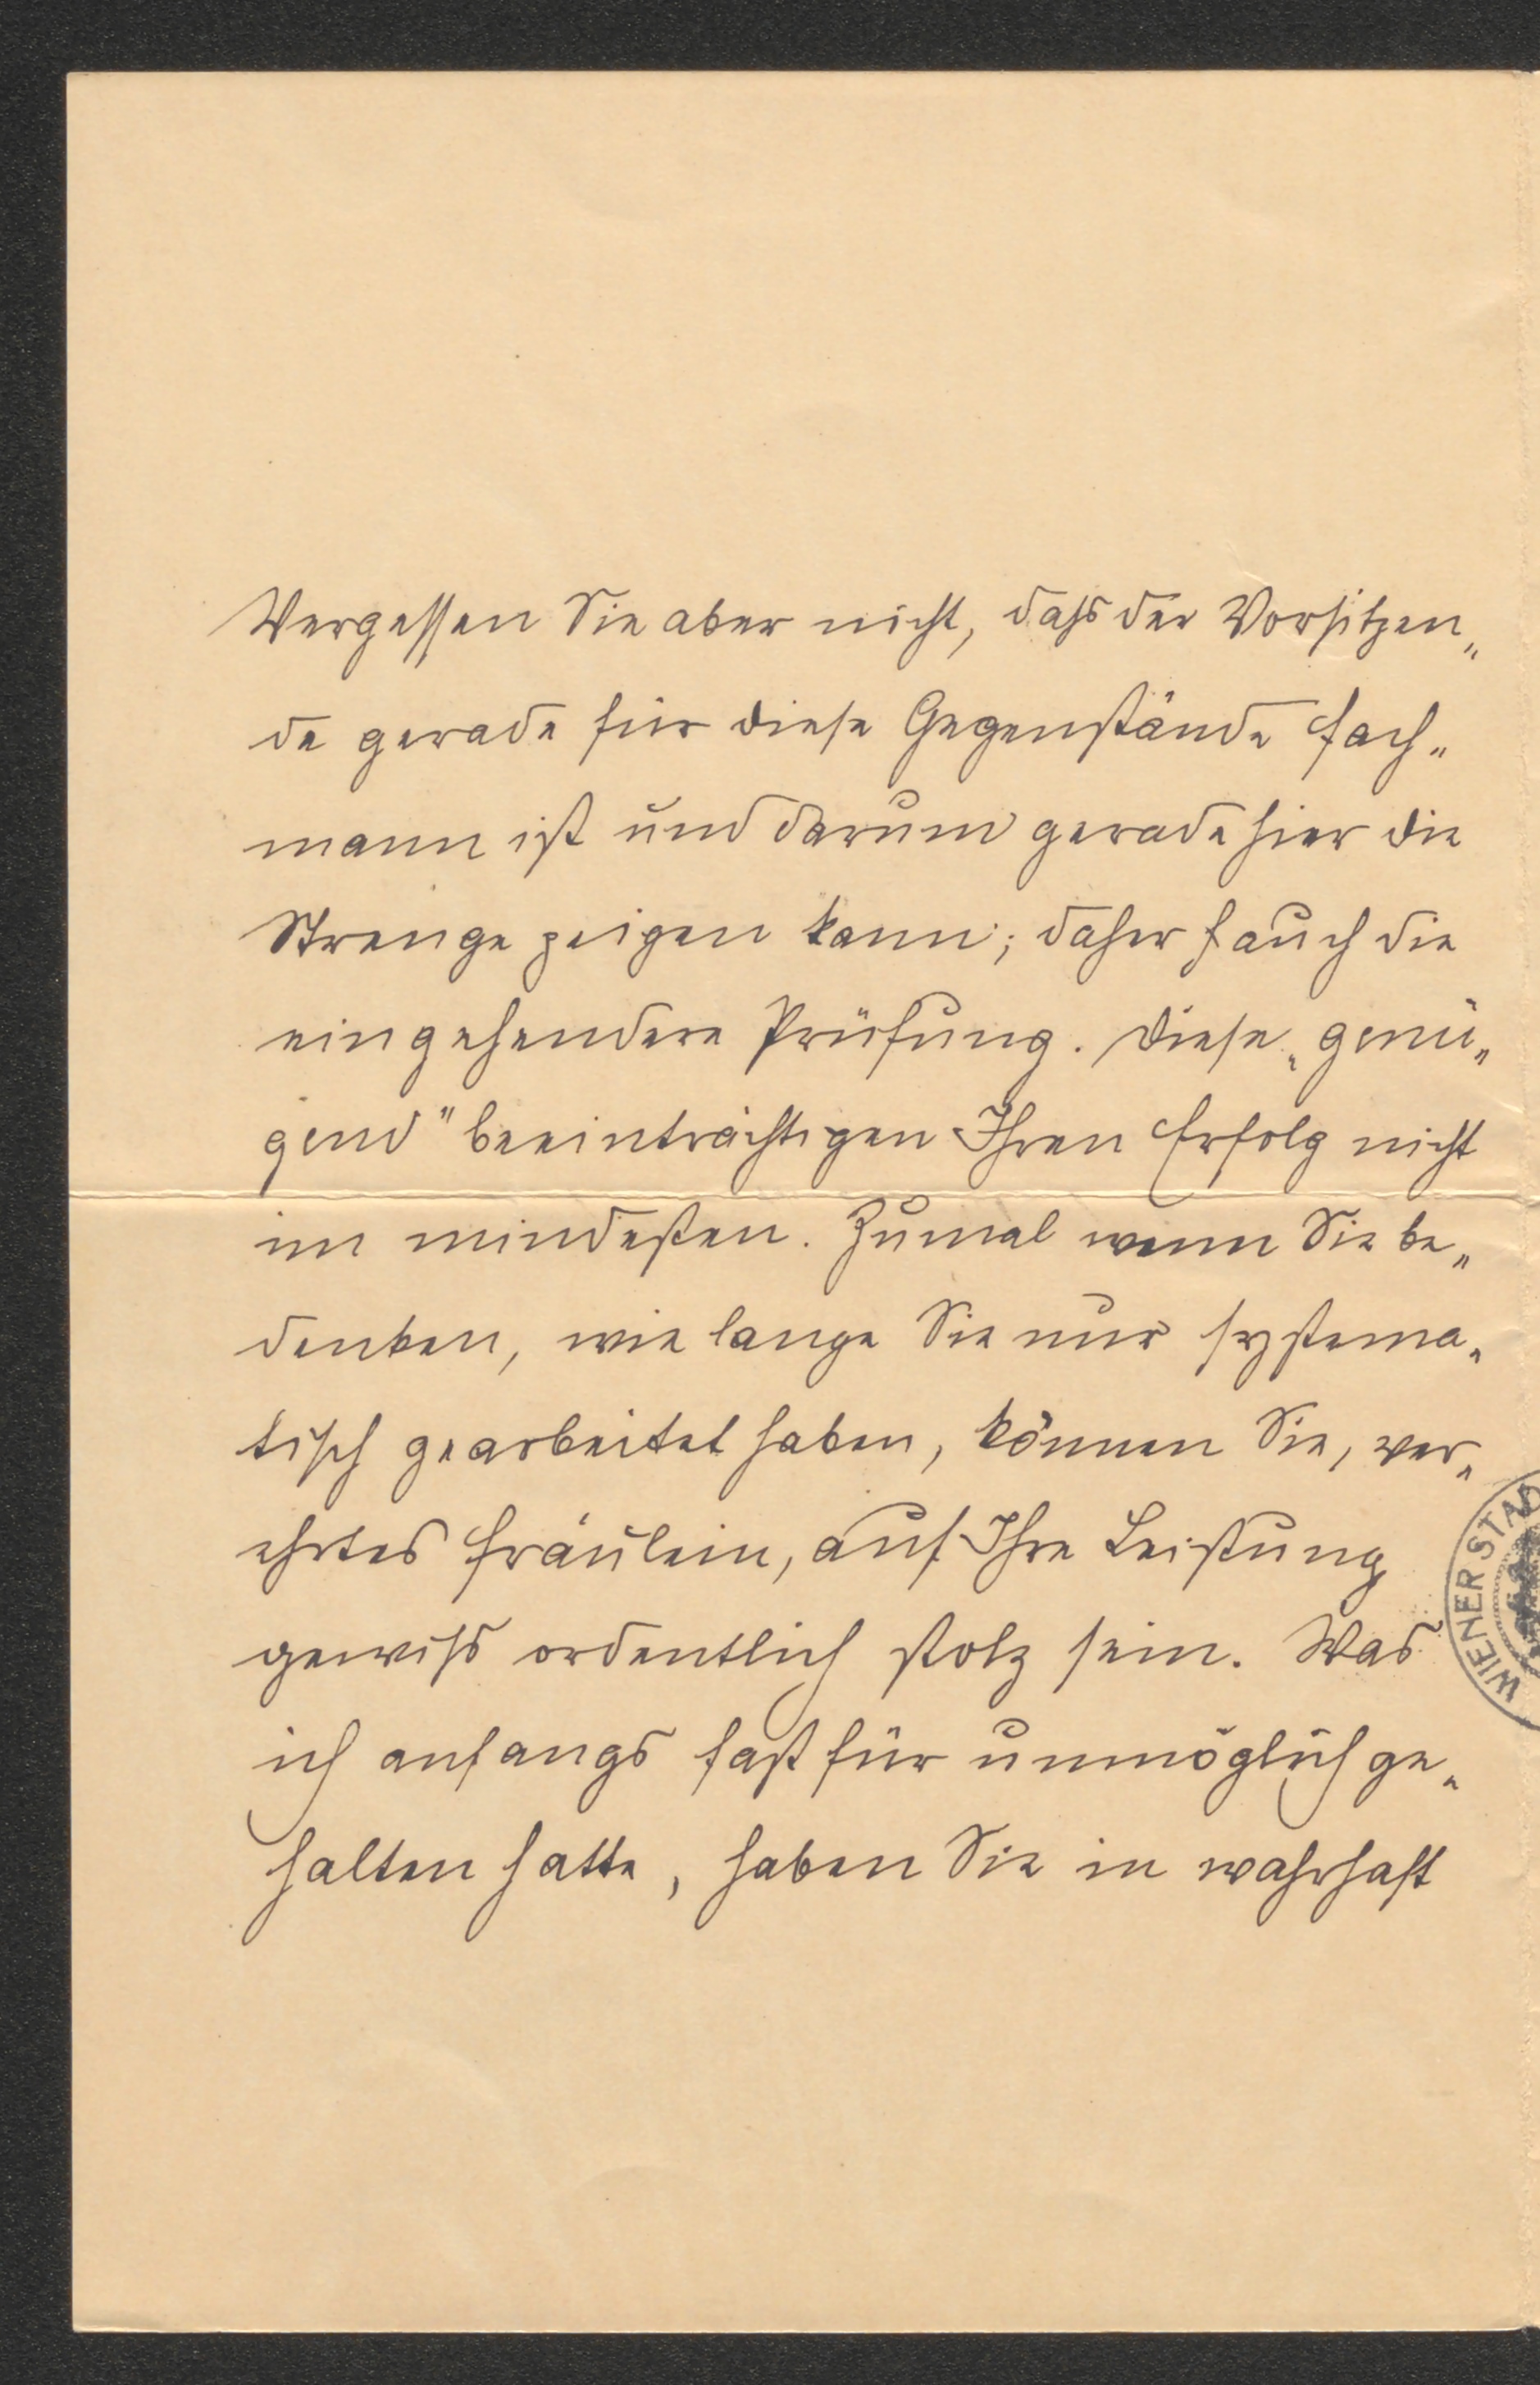 Vergessen Sie aber nicht, dass der Vorsitzen„
de gerade für diese Gegenstände Fach„
mann ist und darum gerade hier die
Strenge zeigen kann; daher auch die
eingehendere Prüfung. Diese „genü„
gend" beeinträchtigen Ihren Erfolg nicht
im mindesten. Zumal wenn Sie be„
denken, wie lange Sie nur systema„
tisch gearbeitet haben, können Sie, ver„
ehrtes Fräulein, auf Ihre Leistung
gewiss ordentlich stolz sein. Was
ich anfangs fast für unmöglich ge„
halten hatte, haben Sie in wahrhaft
WIENER STAD